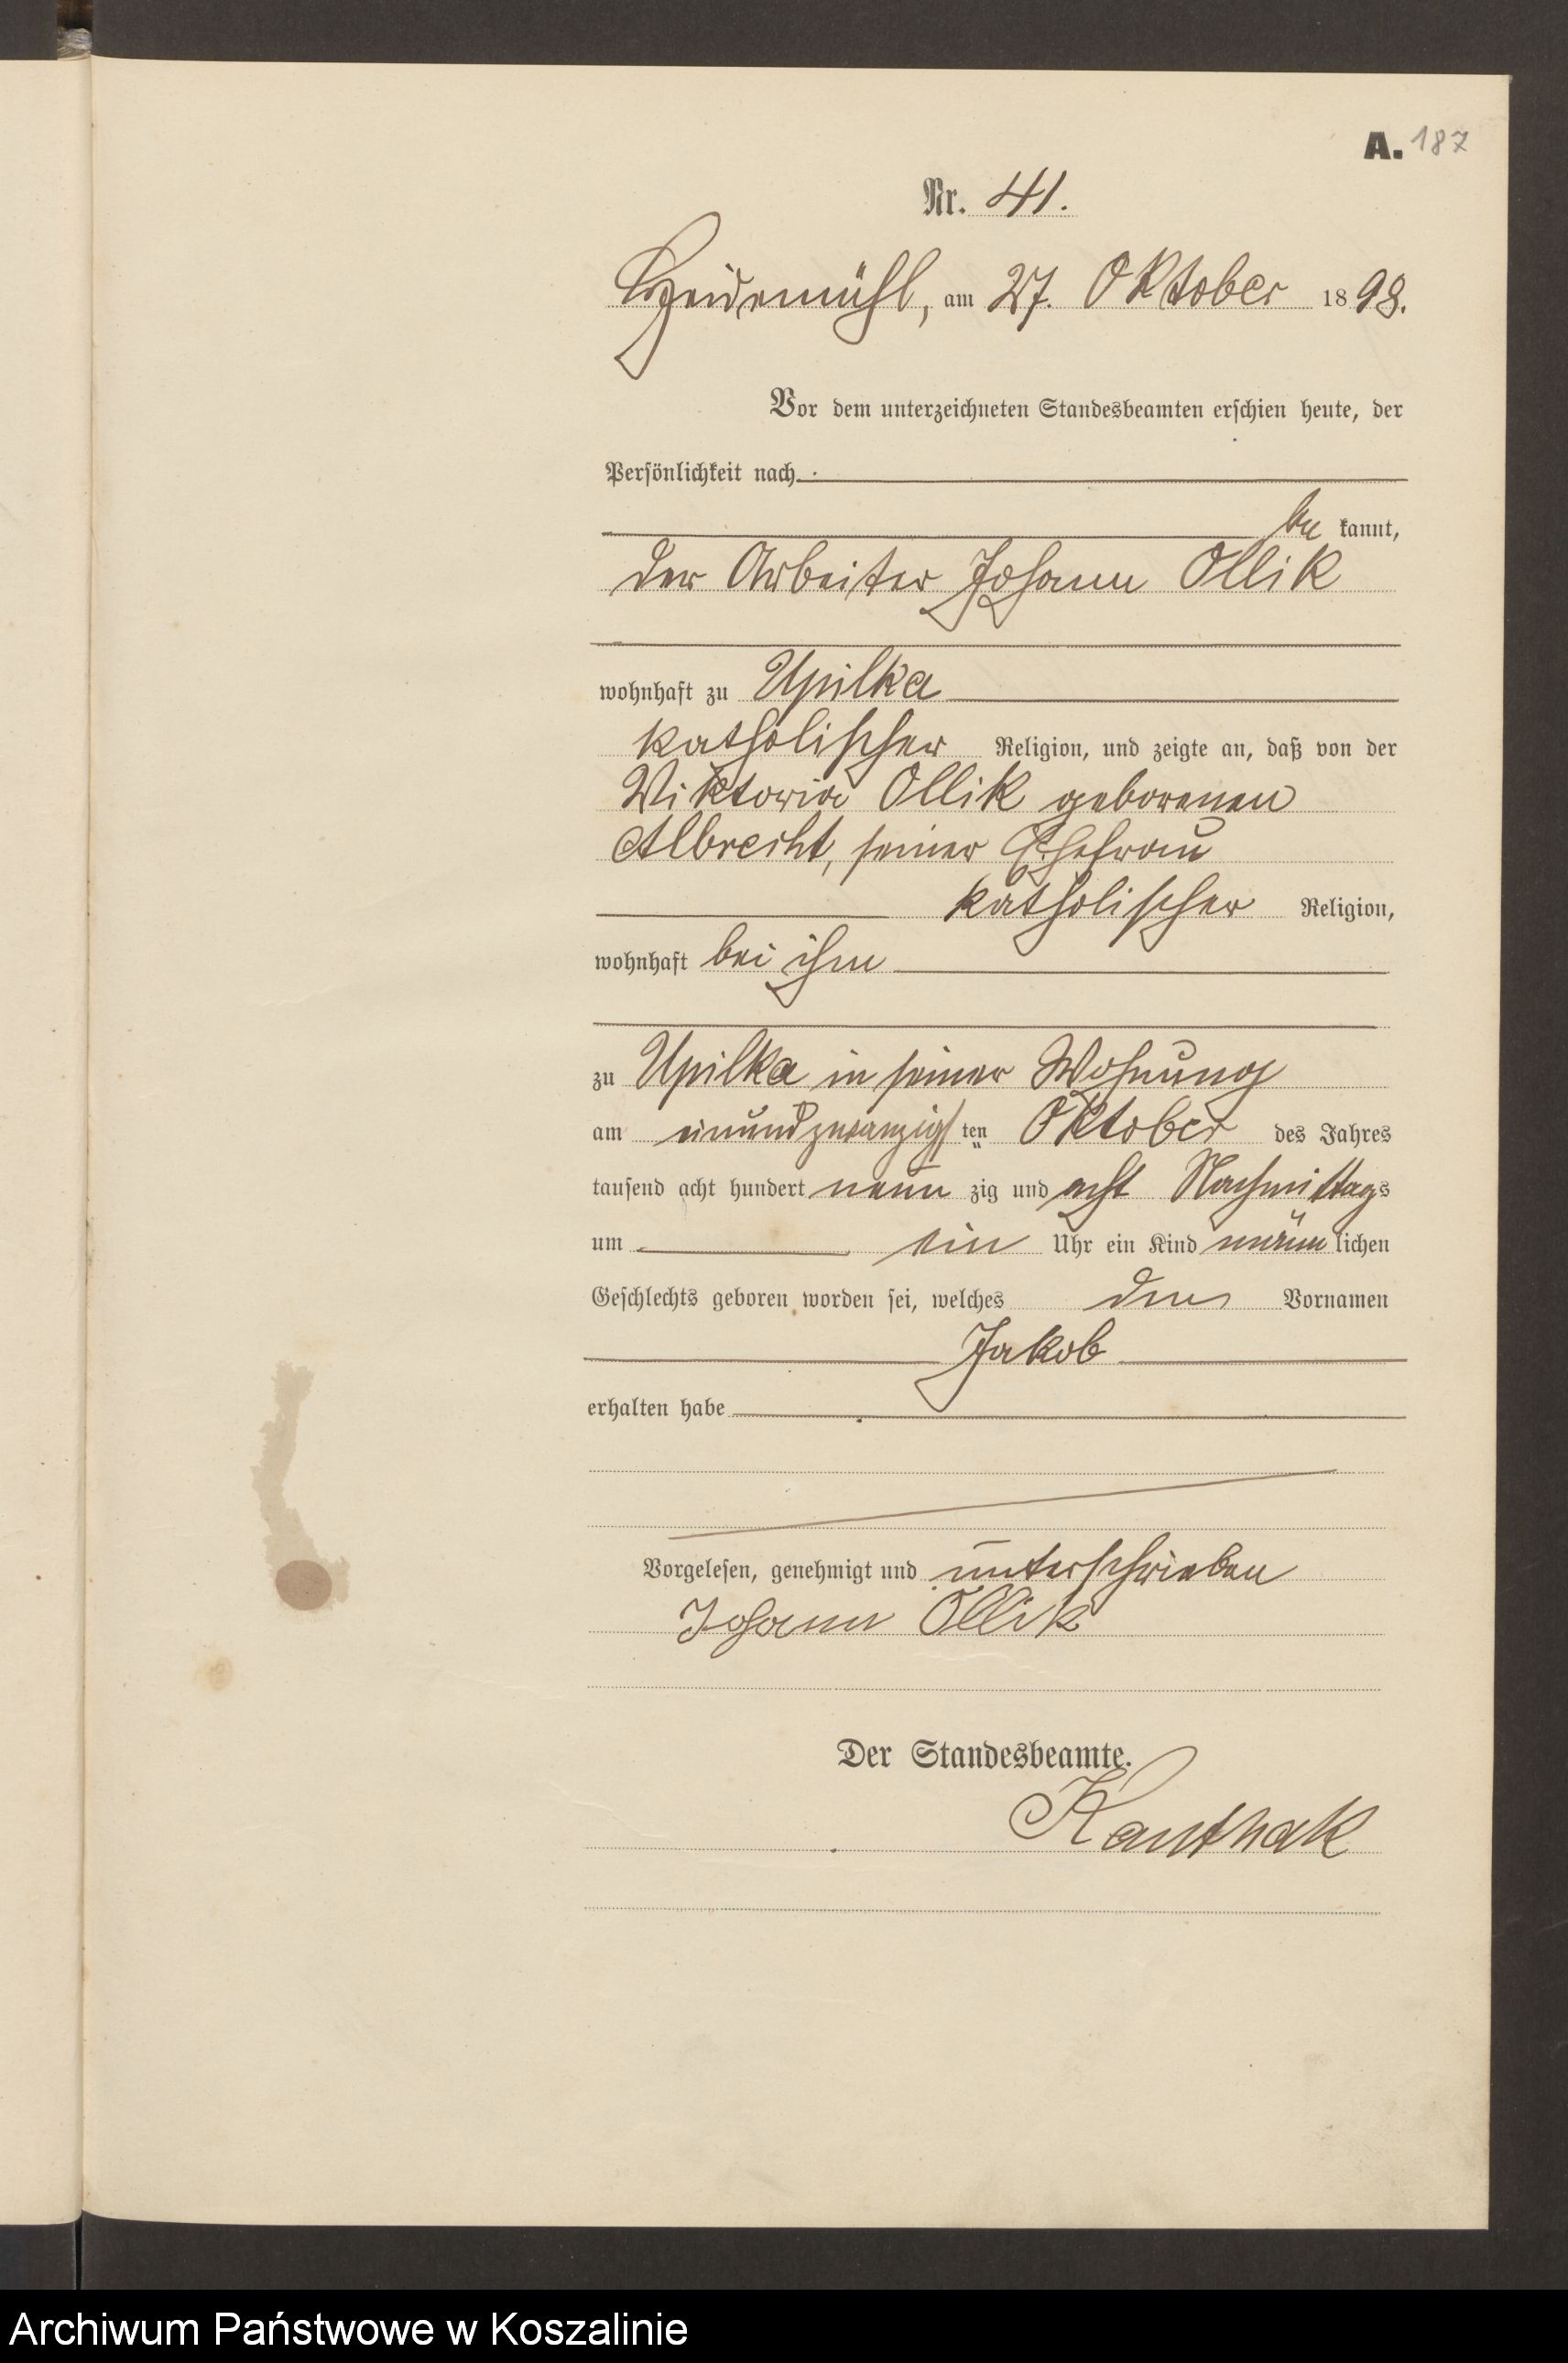 A. 187
Nr. 41.
Heidemühl, am 27. Oktober 1898.
Vor dem unterzeichneten Standesbeamten erschien heute, der
Persönlichkeit nach
be kannt,
der Arbeiter Johann Ollik
wohnhaft zu Upilka
katholischer Religion, und zeigte an, daß von der
Wiktoria Ollik geborenen
Albrecht, seiner Ehefrau
katholischer Religion,
wohnhaft bei ihm
zu Upilka in seiner Wohnung
am einundzwanzigsten Oktober des Jahres
tausend acht hundert neun zig und acht Nachmittags
um ein Uhr ein Kind männlichen
Geschlechts geboren worden sei, welches den Vornamen
Jakob
erhalten habe
Vorgelesen, genehmigt und unterschrieben
Johann Ollik
Der Standesbeamte.
Kanthak
Archiwum Państwowe w Koszalinie